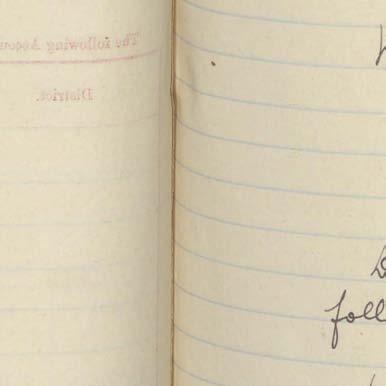 The following Accou
District.
foll